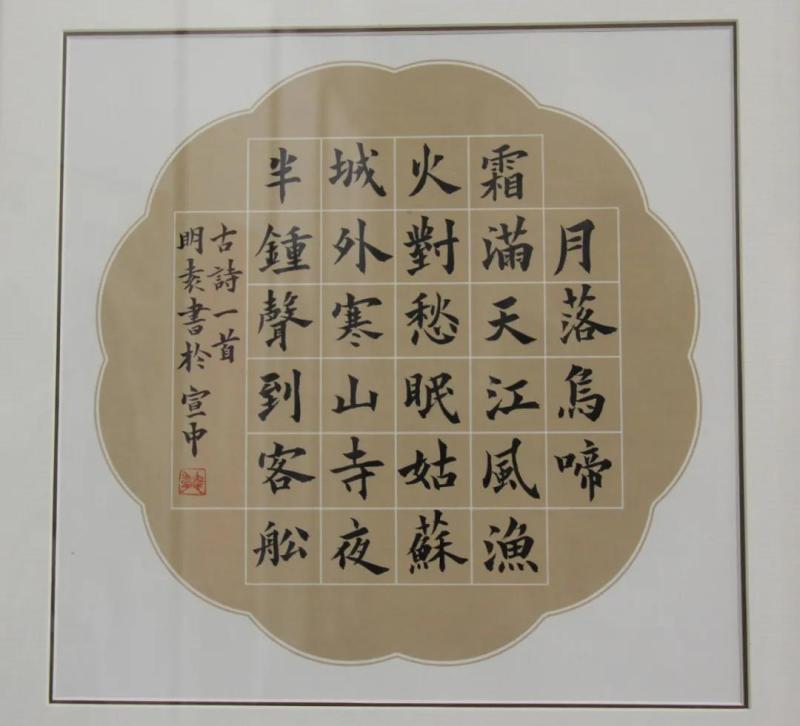 月落烏啼
霜滿天江風漁
火對愁眠姑蘇
城外寒山寺夜
半鍾聲到客舩
古詩一首
明袁書於宣中